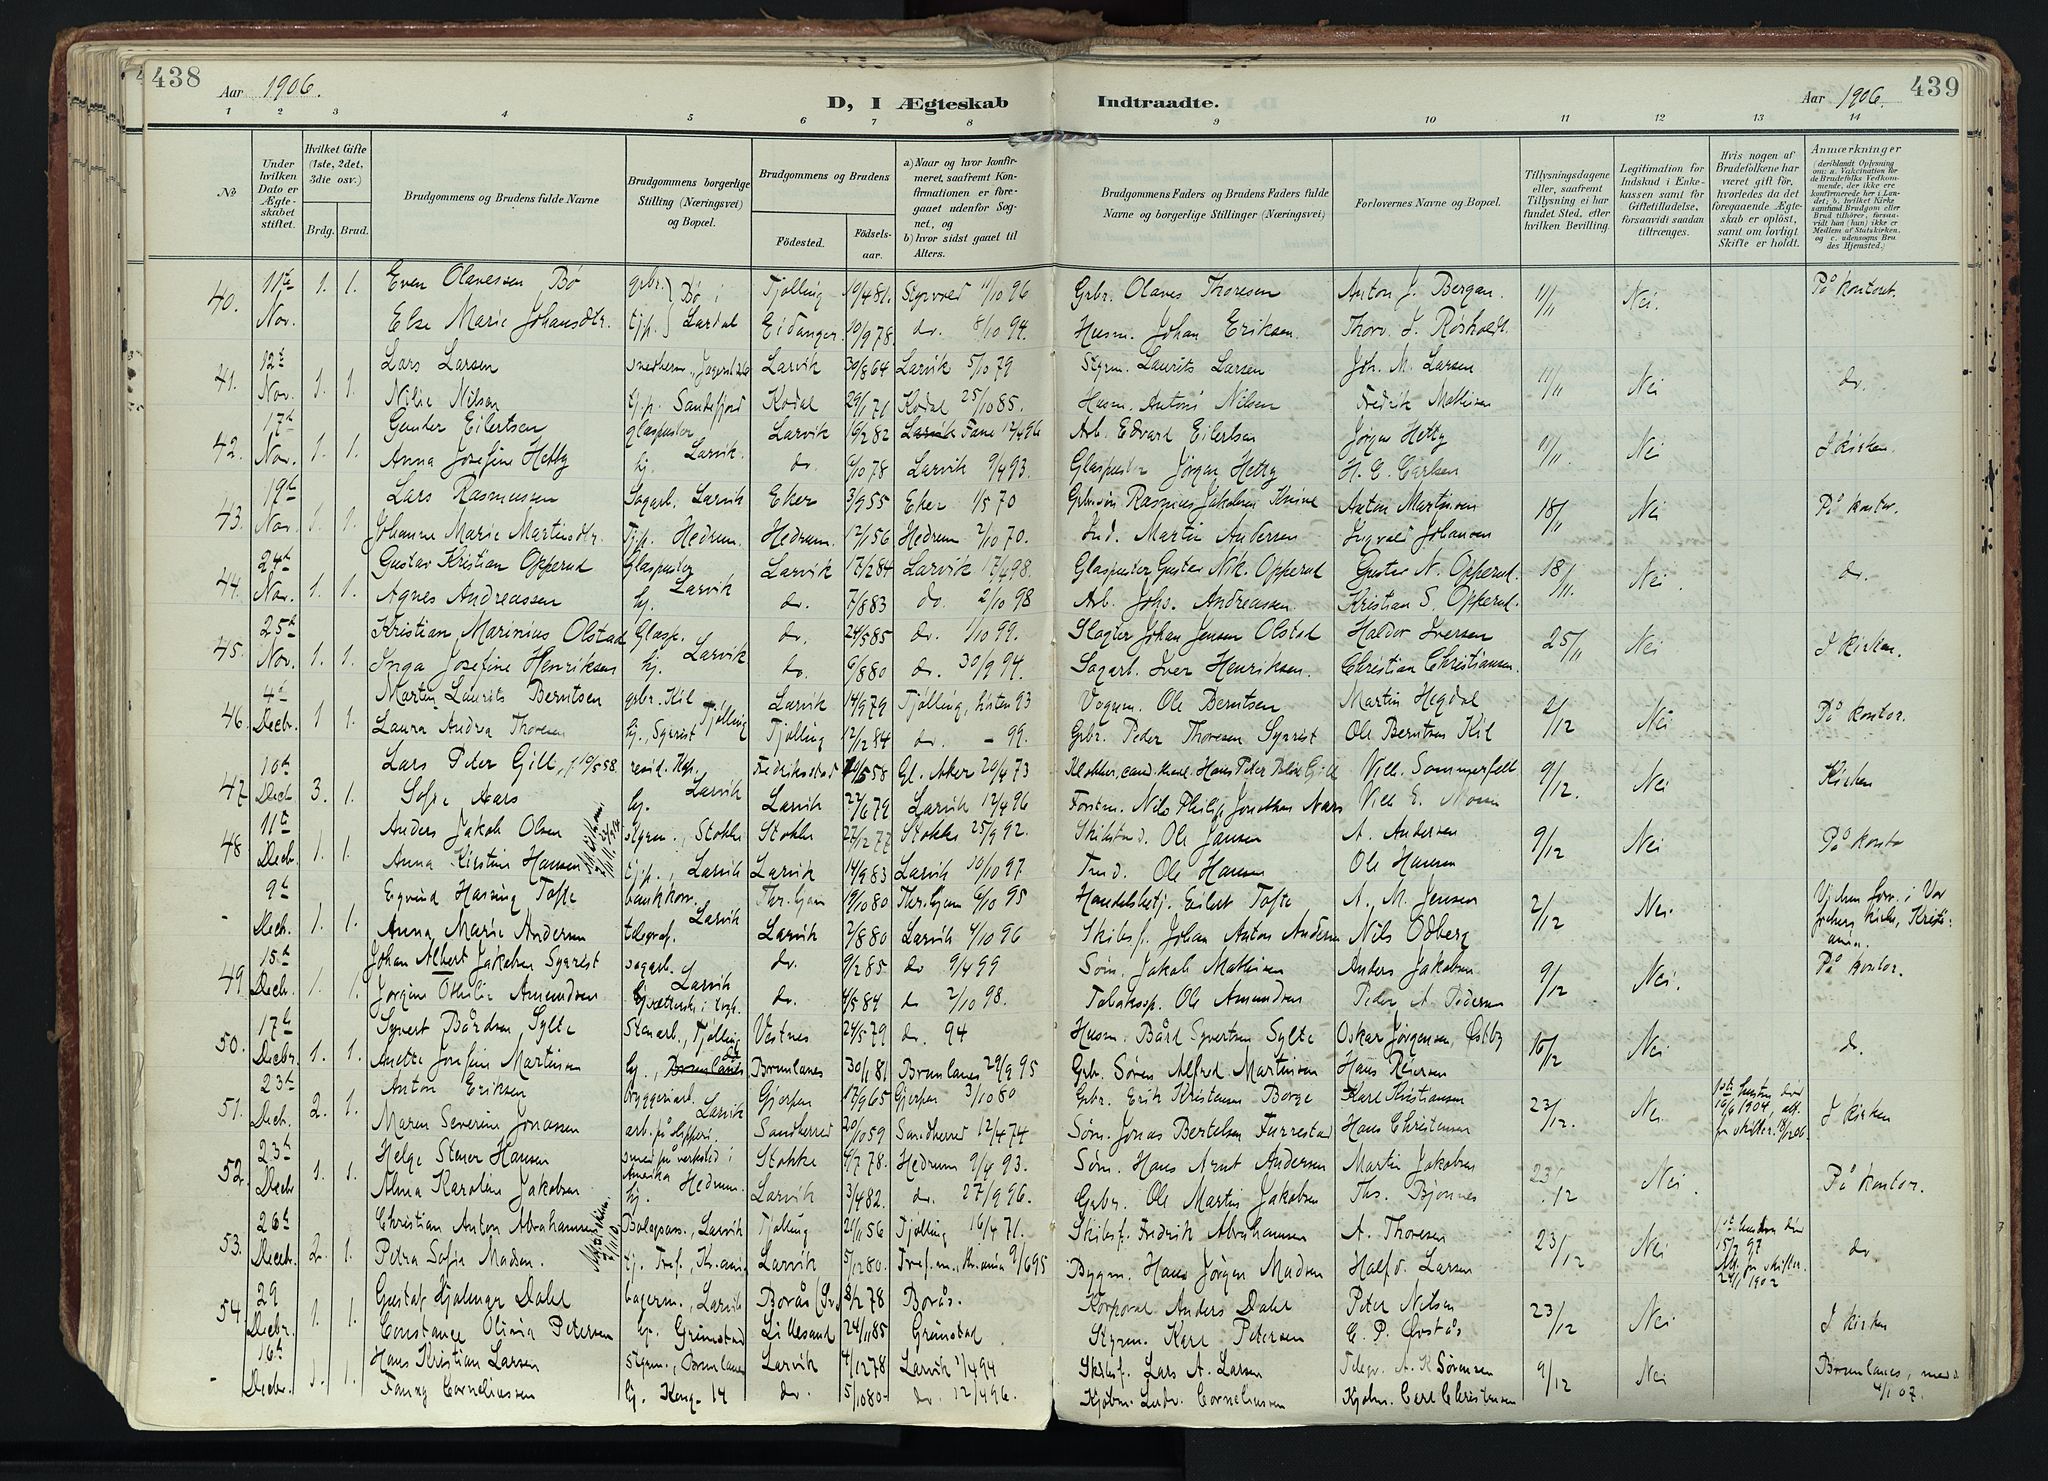 438
Aar 1906.
D, I Ægteskab Indtraadte.
Aar 1906.
439
1 2 3 4 5 6 7 8 9 10 11 12 13 14
No
Under hvilken Dato er Ægteskabet stiftet.
Hvilket Gifte (1ste, 2det, 3die osv.)
Brdg. Brud.
Brudgommens og Brudens fulde Navne
Brudgommens borgerlige Stilling (Næringsvei) og Bopæl.
Brudgommens og Brudens
Födested. Födselsaar.
a) Naar og hvor konfirmeret, saafremt Konfirmationen er foregaaet udenfor Sognet, og
b) hvor sidst gaaet til Alters.
Brudgommens Faders og Brudens Faders fulde Navne og borgerlige Stillinger (Næringsvei)
Forlovernes Navne og Bopæl.
Tillysningsdagene eller, saafremt Tillysning ei har fundet Sted, efter hvilken Bevilling.
Legitimation for Indskud i Enkekassen samt for Giftetilladelse, forsaavidt saadan tiltrænges.
Hvis nogen af Brudefolkene har været gift för, hvorledes da det foregaaende Ægteskab er oplöst, samt om lovligt Skifte er holdt.
Anmærkninger
(deriblandt Oplysning om: a. Vakcination for de Brudefolks Vedkommende, der ikke ere konfirmerede her i Landet; b. hvilket Kirkesamfund Brudgom eller Brud tilhörer, forsaavidt han (hun) ikke er Medlem af Statskirken, og c. udensogns Brudes Hjemsted.)
40. 11te 1. 1. Even Olavessen Bø gbr. Bø i Tjølling 19/4 81. Styrvold 11/10 96 Gbr. Olaves Thoresen Anton J. Bergan. 11/11 Nei. På kontoret.
Nov. Else Marie Johansdtr. tjp. Lardal Eidanger 10/9 78. do. 8/10 94. Husm. Johan Eriksen Thorv. J. Røsholdt.
41. 12te 1. 1. Lars Larsen Larvik 30/8 64 Larvik 5/10 79 Styrm. Laurits Larsen Joh. M. Larsen 11/11 Nei do.
Nov. Nilie Nilsen tj.p. Sandefjord Kodal 29/1 71 Kodal 25/10 85. Husm. Antons Nilsen Fredrik Mathisen
42. 17de 1. 1. Gunder Eilertsen glaspuster Larvik. Larvik 16/2 82 Fane 12/4 96 Arb. Edvard Eilertsen Jørgen Hetty 11/11. Nei I kirken.
Nov. Anna Josefine Hetty hj. do. 9/10 78 Larvik 9/4 93. Glaspuster Jørgen Hetty H. E. Carlsen
43. 19de 1. 1. Lars Rasmussen Sagarb. Larvik Eker 3/9 55 Eker 1/5 70 Rasmus Jakobsen Anton Martinsen 18/11 Nei På kontor.
Nov. Johanne Marie Martinsdtr. Tjp. Hedrum. Hedrum. 12/1 56 Hedrum 2/10 70. Ind. Martin Andersen Ingvald Johansen
44. 24de 1. 1. Gustav Kristian Opperud Glaspuster Larvik Larvik 17/2 84 Larvik 17/4 98. Glaspuster Gustav Nik. Opperud Gustav N. Opperud. 18/11. Nei do.
Nov. Agnes Andreassen hj. do. 7/8 83 do. 2/10 98 Arb. Johs. Andreassen. Kristian S. Opperud.
45. 25de 1. 1. Kristian Marinius Olstad Glasp. Larvik do. 24/5 85 do. 1/10 99. Slagter Johan Jensen Olstad Haldor Iversen 25/11 Nei I kirken.
Nov. Inga Josefine Henriksen hj. do. 6/8 80 do. 30/9 94. Sagarb. Iver Henriksen. Christian Christiansen.
46. 4de 1 1. Martin Laurits Berntsen gbr. Kil Tjølling Larvik 14/9 79 Tjølling, høsten 93 Vognm. Ole Berntsen Martin Hegdal 2/12 Nei På kontor.
Decbr. Laura Andrea Thoresen hj., Syrrist Tjølling 12/12 84 do. – 99. Gbr. Peder Thoresen Syrrist Ole Berntsen Kil
47. 10de 3. 1. Lars Peter Gill, f 19/5 58. Larvik Fredriksstad 19/5 58 Gl. Aker 20/4 73 Klokker, Hans Peter Gill Vilh. Sommerfelt 9/12. Nei Kirken
Decb. Sofie Aars hj. Larvik 22/6 79 Larvik 12/4 96 Forstm. Nils Philip Jonathan Aars
48 11te 1. 1. Anders Jakob Olsen styrm., Stokke Stokke 27/12 77 Stokke 25/9 92. Skibstmd. Ole Jansen A. Andersen 9/12 Nei På kontor
Decbr. Anna Kirstine Hansen tjp., Larvik Larvik 14/9 83 Larvik 10/10 97 Tmd. Ole Hansen Ole Hansen
- 9de 1. 1. Eyvind Hasting Tofte bankkon. Larvik Thr.hjem 19/10 80 Thr.hjem 6/10 95 Handelsbetj. Eilert Tofte A. M. Jensen 2/12 Nei. Vor frelsers kirke, Kristiania.
Decb. Anna Marie Andersen telegraf. Larvik 2/8 80 Larvik 4/10 96 Skibsf. Johan Anton Andersen Nils Odberg
49. 15de 1. 1. Johan Albert Jakobsen Syrrist sagarb. Larvik do. 9/2 85 do 9/4 99 Søm. Jakob Mathisen Anders Jakobsen 9/12 Nei. På kontor.
Decb. Jørgine Othilie Amundsen do. 4/5 84 do 2/10 98. Tobaksp. Ole Amundsen Peder A. Pedersen
50. 17de 1. 1. Syvert Bårdsen Sylte Stenarb., Tjølling Vestnes 24/5 79 do. 94 Husm. Bård Syvertsen Sylte Oskar Jørgensen, Østby 16/12 Nei do.
Decbr. Anette Josefine Martinsen hj., Brunlanes Brunlanes 30/1 81 Brunlanes 29/9 95 Gbr. Søren Alfred Martinsen Hans Reiersen
51. 23de 2. 1. Anton Eriksen bryggeriarb. Larvik Gjerpen 17/9 65 Gjerpen 3/10 80 Gbr. Erik Kristensen Borge Karl Kristiansen 23/12. Nei 1ste hustru død 16/6 1904, I kirken
Decb. Maren Severine Jonassen Sandherred 20/10 59 Sandherred 12/4 74 Søm. Jonas Bertelsen Furrestad Hans Christensen
52. 23de 1. 1. Helge Stener Hansen smed på verksted i Amerika Stokke 4/7 78. Hedrum 9/4 93. Søm. Hans Arnt Andersen Martin Jakobsen 23/12 Nei. På kontor.
Decbr Alma Karoline Jakobsen hj. Hedrum. Larvik 3/4 82. do. 27/9 96. Gbr. Ole Martin Jakobsen Ths. Bjønnes
53. 26de 2. 1. Christian Anton Abrahamsen Bolagsass., Larvik Tjølling 21/11 56 Tjølling 16/4 71. Skibsf. Fredrik Abrahamsen A. Thoresen 23/12 Nei 1ste hustru død 15/7 97 24/1 1902 do
Decbr. Petra Sofie Madsen. tj. Tref., Kr.ania Larvik 5/12 80. Tref.m., Kr.ania 9/6 95 Bygm. Hans Jørgen Madsen Halfd. Larsen
54. 29 1. 1. Gustaf Hjalmar Dahl bagerm., Larvik Borås (Sv.) 8/2 78 Borås. Korporal Anders Dahl Peter Nilsen 23/12 Nei I kirken
Decbr. Constance Olivia Petersen hj. Grimstad Lillesand 24/11 85 Grimstad Styrm. Karl Petersen
- 16de 1. 1. Hans Kristian Larsen Styrm., Brunlanes Larvik 4/12 78 Larvik 1/4 94 Skibsf. Lars A. Larsen Telegr. A. K Sørensen 9/12 Nei Brunlanes, 4/1 07.
Decbr. Fanny Corneliussen hj. Kong. 14 do. 5/10 80 do. 12/4 96. Kjøbm. Ludv. Corneliussen Kjøbm. Carl Christensen